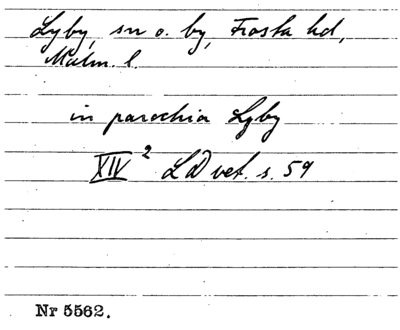 Lyby, sn o. by, Frosta hd,
Malm. l.
in parochia Lyby
XIV 2 LD vet. s. 59
Nr 5562.